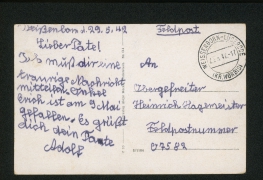 d. 29. 5. 42
Feldpost
Lieber Patel
Ich muß dir eine
traurige Nachricht
mitteilen Onkel
Erich ist am 9 Mai
gefallen. Es grüßt
dich dein Tante
Adolf
An
Obergefreiter
Heinrich Hagemeister
Feldpostnummer
07582